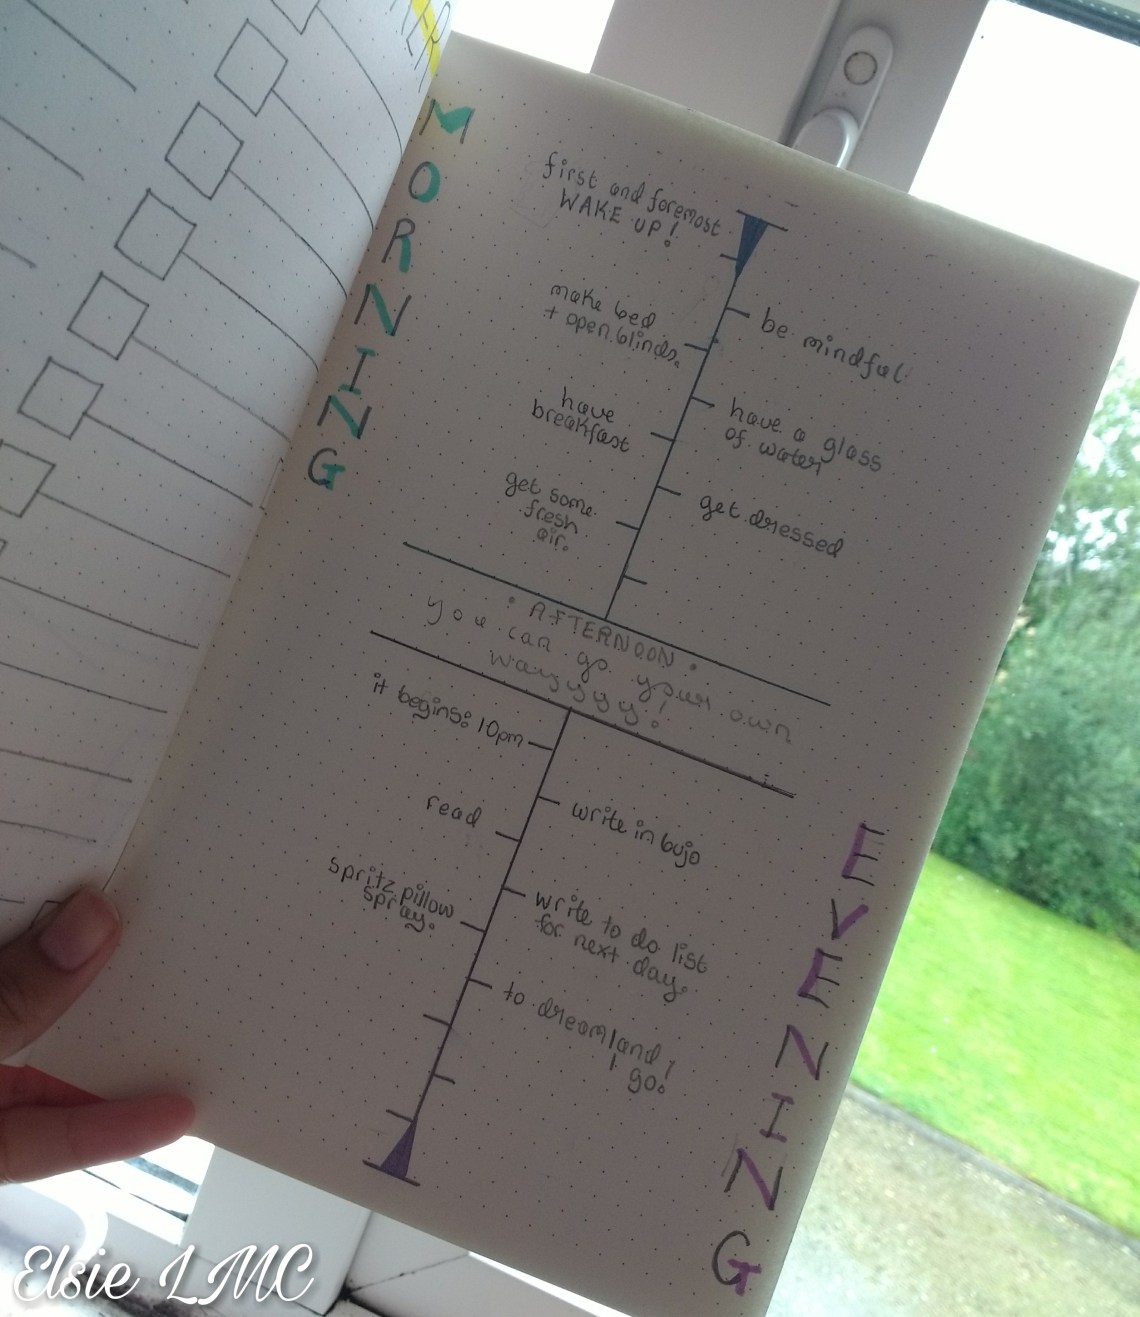 MORNING
first and foremost
WAKE UP!
be mindful
make bed
+ open blinds.
have a glass
of water
have
breakfast
get dressed
get some
fresh
air.
• AFTERNOON •
you can go your own
wayyyy!
it begins: 10pm
write in bujo
read
write to do list
for next day.
spritz pillow
spray.
to dreamland,
I go.
EVENING
Elsie LMC